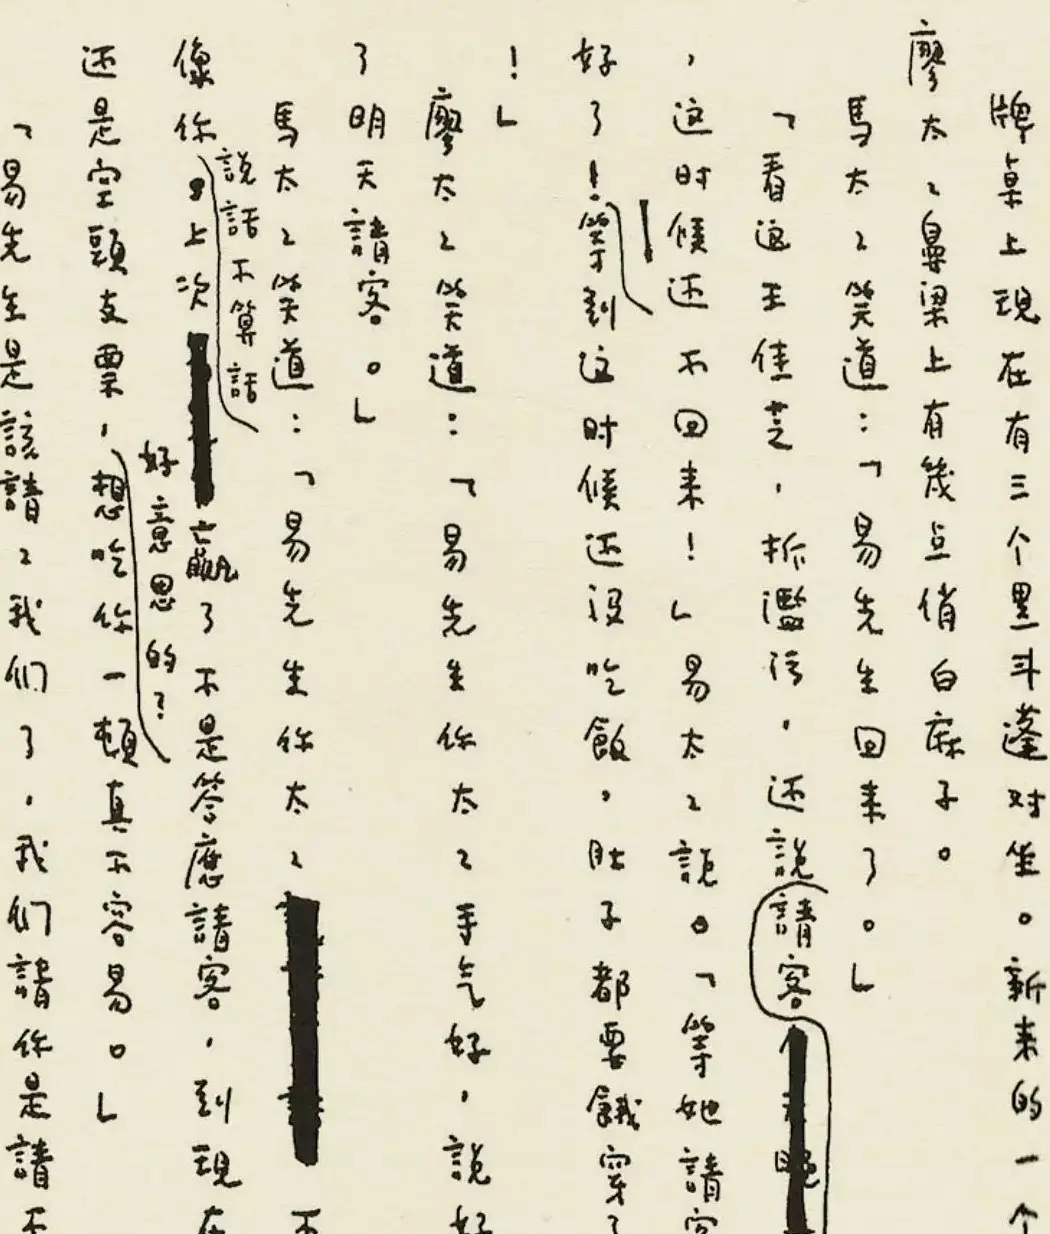 牌桌上现在有三个黑斗蓬对坐。新来的一个
廖太々鼻梁上有幾点俏白麻子。
馬太々笑道：「易先生回来了。」
「看这王佳芝，拆濫污，还說請客
，这时候还不回来！」易太々說。「等她請客
好了！等到这时候还没吃飯，肚子都要餓穿了
！」
廖太々笑道：「易先生你太々手气好，說好
了明天請客。」
馬太々笑道：「易先生你太々不
像你說話不算話。上次贏了不是答應請客，到現在
还是空頭支票，好意思的？想吃你一頓真不容易。」
「易先生是該請々我们了，我们請你是請不